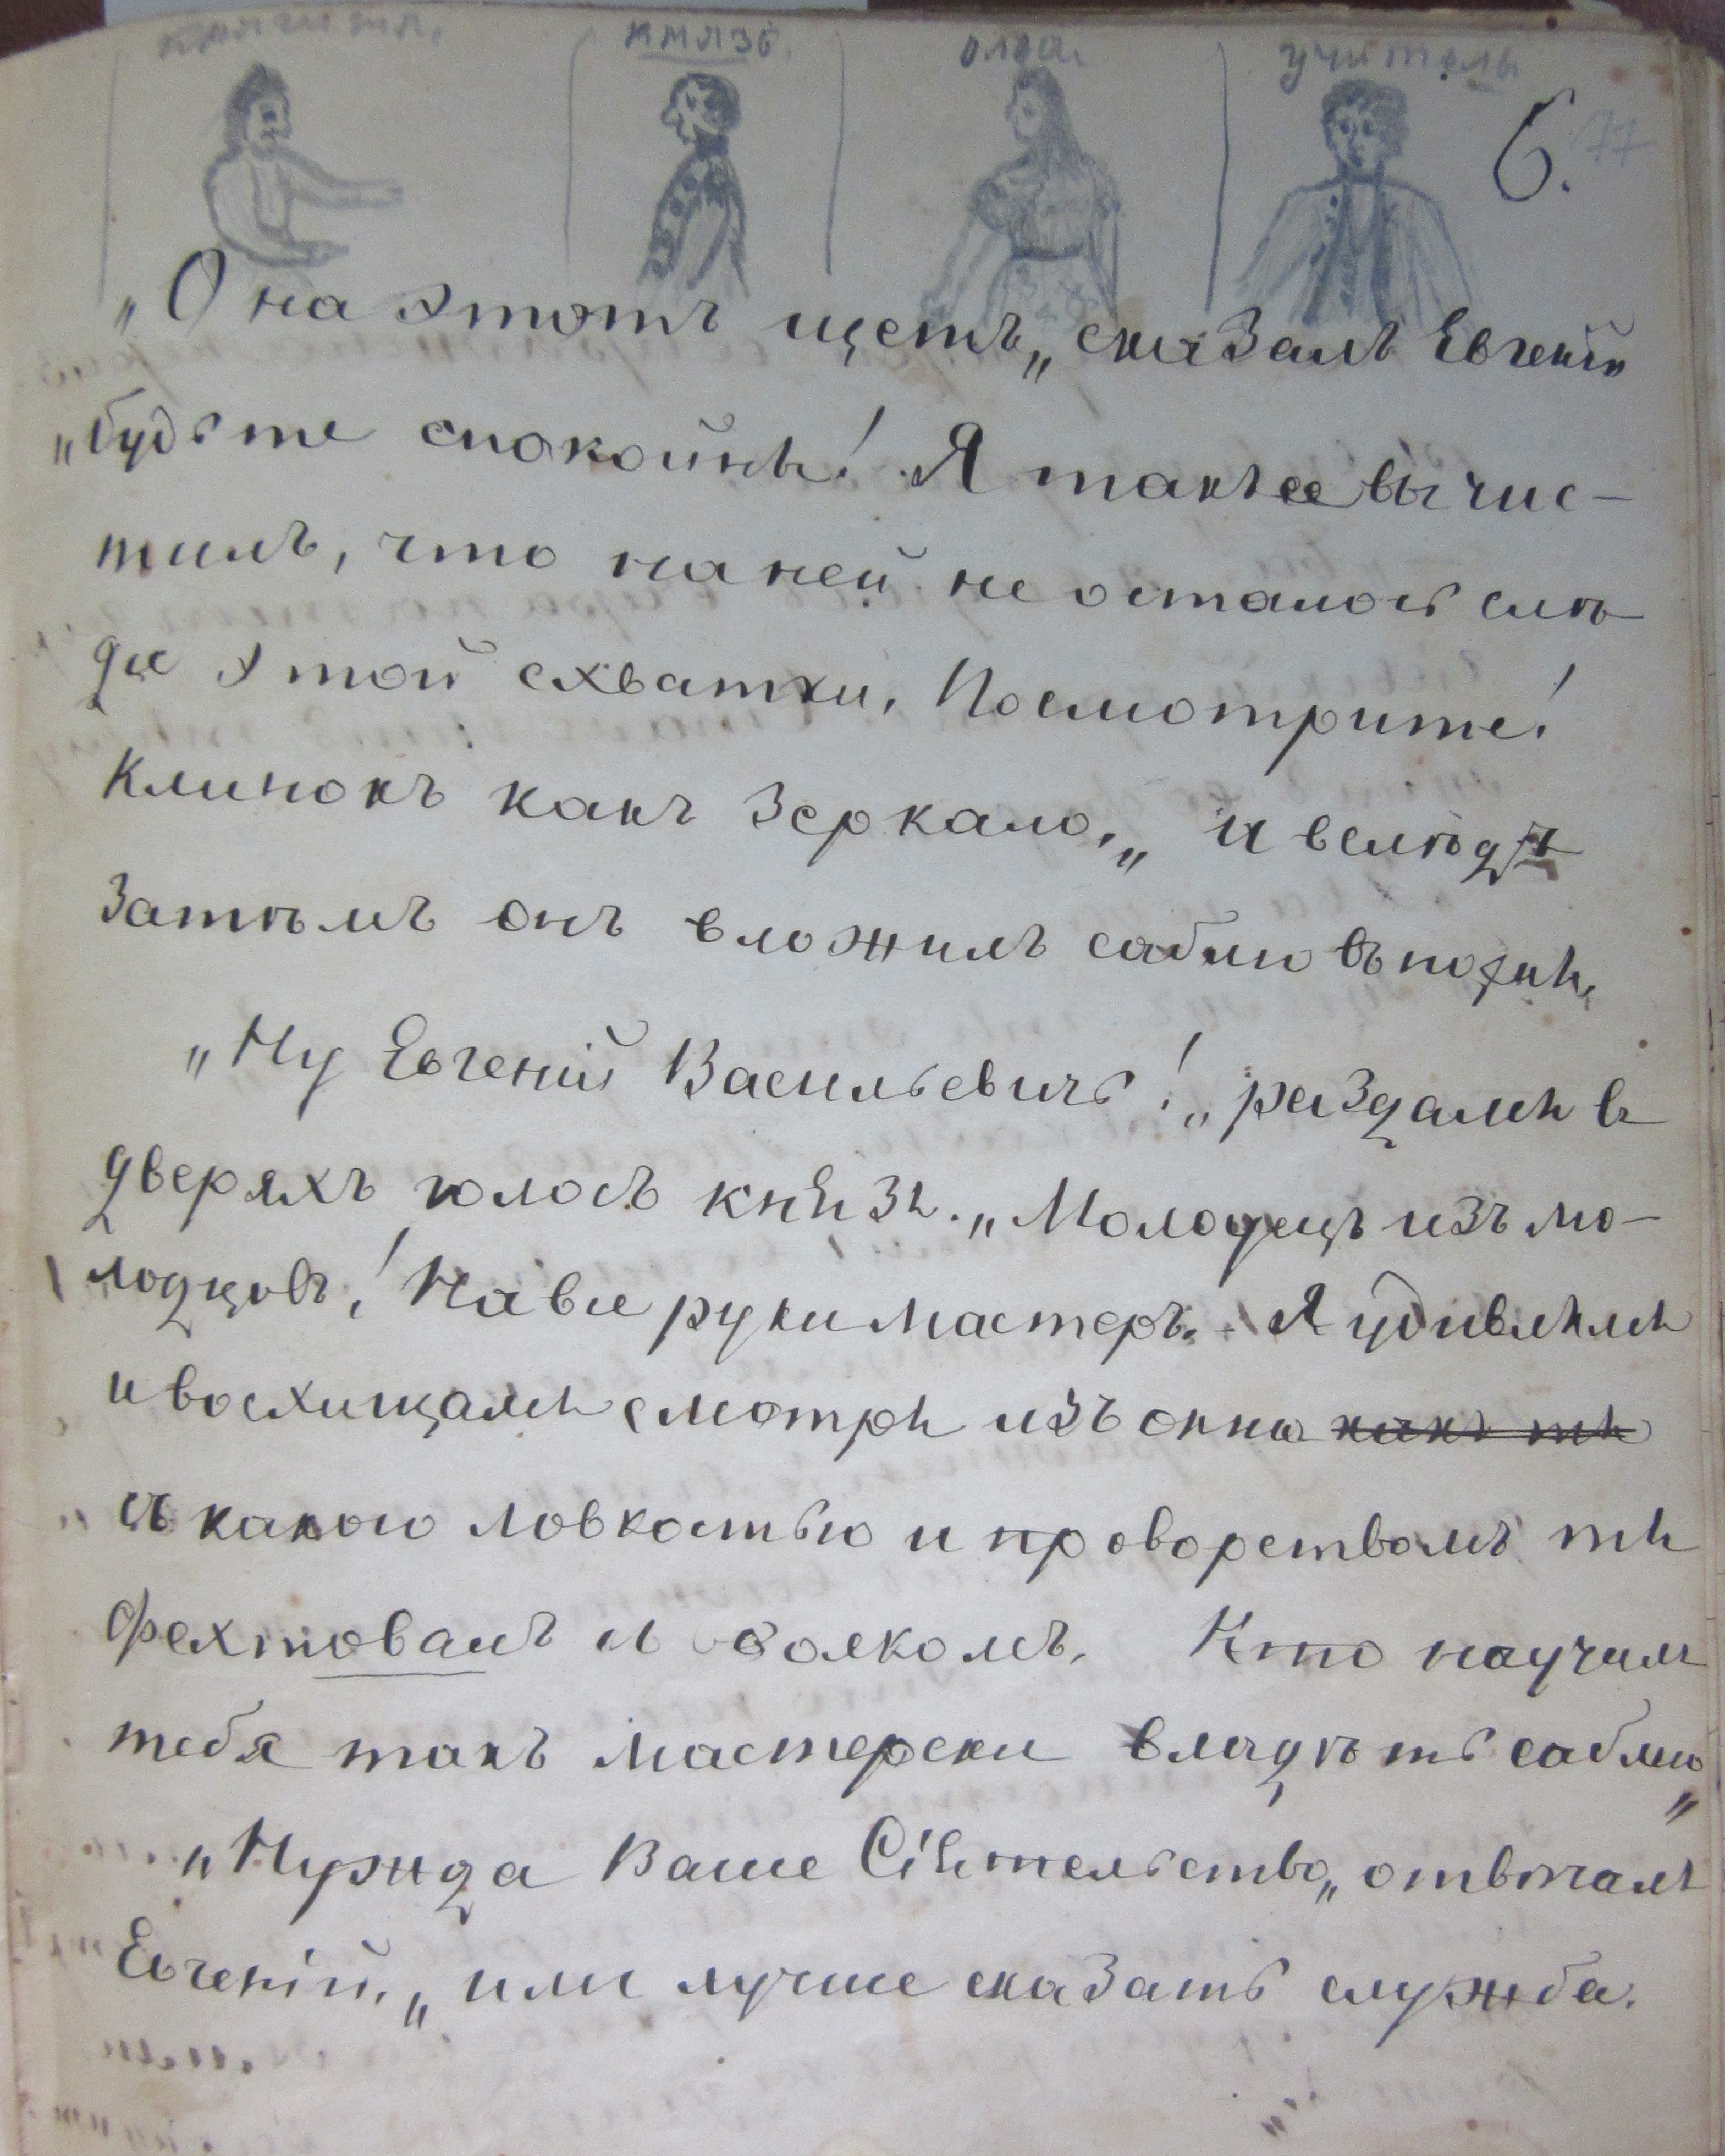 князь. Ольга. учитель
6. 77
„О на этотъ щетъ„ сказалъ Евгеній
„будьте спокойны! Я такъ ее вычис-
тилъ, что на ней не осталось слѣ
да этой схватки, Посмотрите!
Клинокъ какъ зеркало,„ и вслѣдъ
затѣмъ онъ вложилъ саблю въ ножны,
„Ну Евгеній Васильевичь!„ раздался въ
дверяхъ голосъ князя. „Молодецъ изъ мо-
лодцовъ! На все руки мастеръ. Я удивлялся
и восхищался смотря изъ окна какъ ты
съ какою ловкостью и проворствомъ ты
фехтовалъ съ волкомъ. Кто научилъ
тебя такъ мастерски владѣть саблею„
„Нужда Ваше Сіятельство„ отвѣчалъ
Евгеній, „или лучше сказать служба.